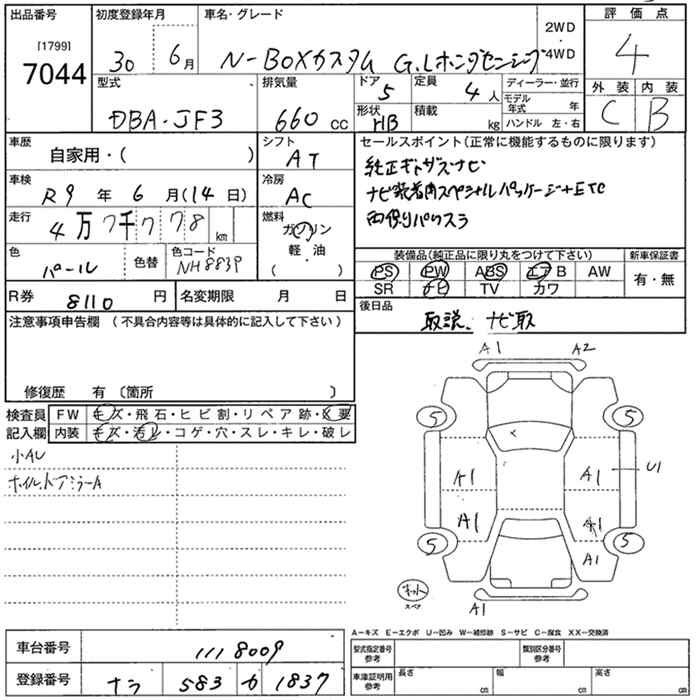 出品番号 初度登録年月 車名・グレード 評価点
[1799]
7044
30 6月 N-BOXカスタム G.Lホンダセンシング 2WD・4WD 4
型式 排気量 ドア 5 定員 4人 ディーラー・並行 外装 内装
DBA-JF3 660 cc 形状 HB 積載 kg モデル年式 年 C B
ハンドル 左・右
車歴 自家用・( ) シフト AT セールスポイント(正常に機能するものに限ります)
純正ギャザズナビ
車検 R9年 6月(14日) 冷房 AC ナビ装着用スペシャルパッケージ+ETC
走行 4万7千778km 燃料 ガソリン 両側パワスラ
軽・油
( )
色 パール 色替 色コード NH883P 装備品(純正品に限り丸をつけて下さい) 新車保証書
PS PW ABS エアB AW 有・無
SR ナビ TV カワ
R券 8110円 名変期限 月 日 後日品
取説、ナビ取
注意事項申告欄 (不具合内容等は具体的に記入して下さい)
修復歴 有 〔箇所 〕
検査員記入欄 FW キズ・飛石・ヒビ割・リペア跡・X要
内装 キズ・汚レ・コゲ・穴・スレ・キレ・破レ
小AU
ホイル、ドアミラーA
A1 A2
5 5
A1 A1 U1
A1 A1
5 5
A1
スペア
A1
A-キズ E-エクボ U-凹み W-補修跡 S-サビ C-腐食 XX-交換済
車台番号 1118009 型式指定番号 参考 類別区分番号 参考
登録番号 ナラ 583 カ 1837 車庫証明用 参考 長さ cm 幅 cm 高さ cm